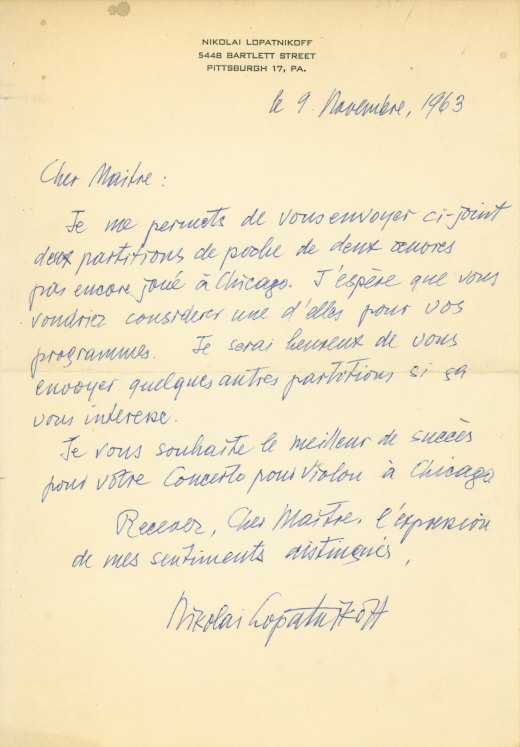 NIKOLAI LOPATNIKOFF
5448 BARTLETT STREET
PITTSBURGH 17, PA.
le 9 Novembre, 1963
Cher Maitre :
Je me permets de vous envoyer ci-joint
deux partitions de poche de deux œuvres
pas encore joué à Chicago. J'espère que vous
voudriez considerer une d'elles pour vos
programmes. Je serai heureux de vous
envoyer quelques autres partitions si ça
vous interesse.
Je vous souhaite le meilleur de succès
pour votre Concerto pour Violon à Chicago
Recevez, Cher Maître, l'expression
de mes sentiments distingués,
Nikolai Lopatnikoff